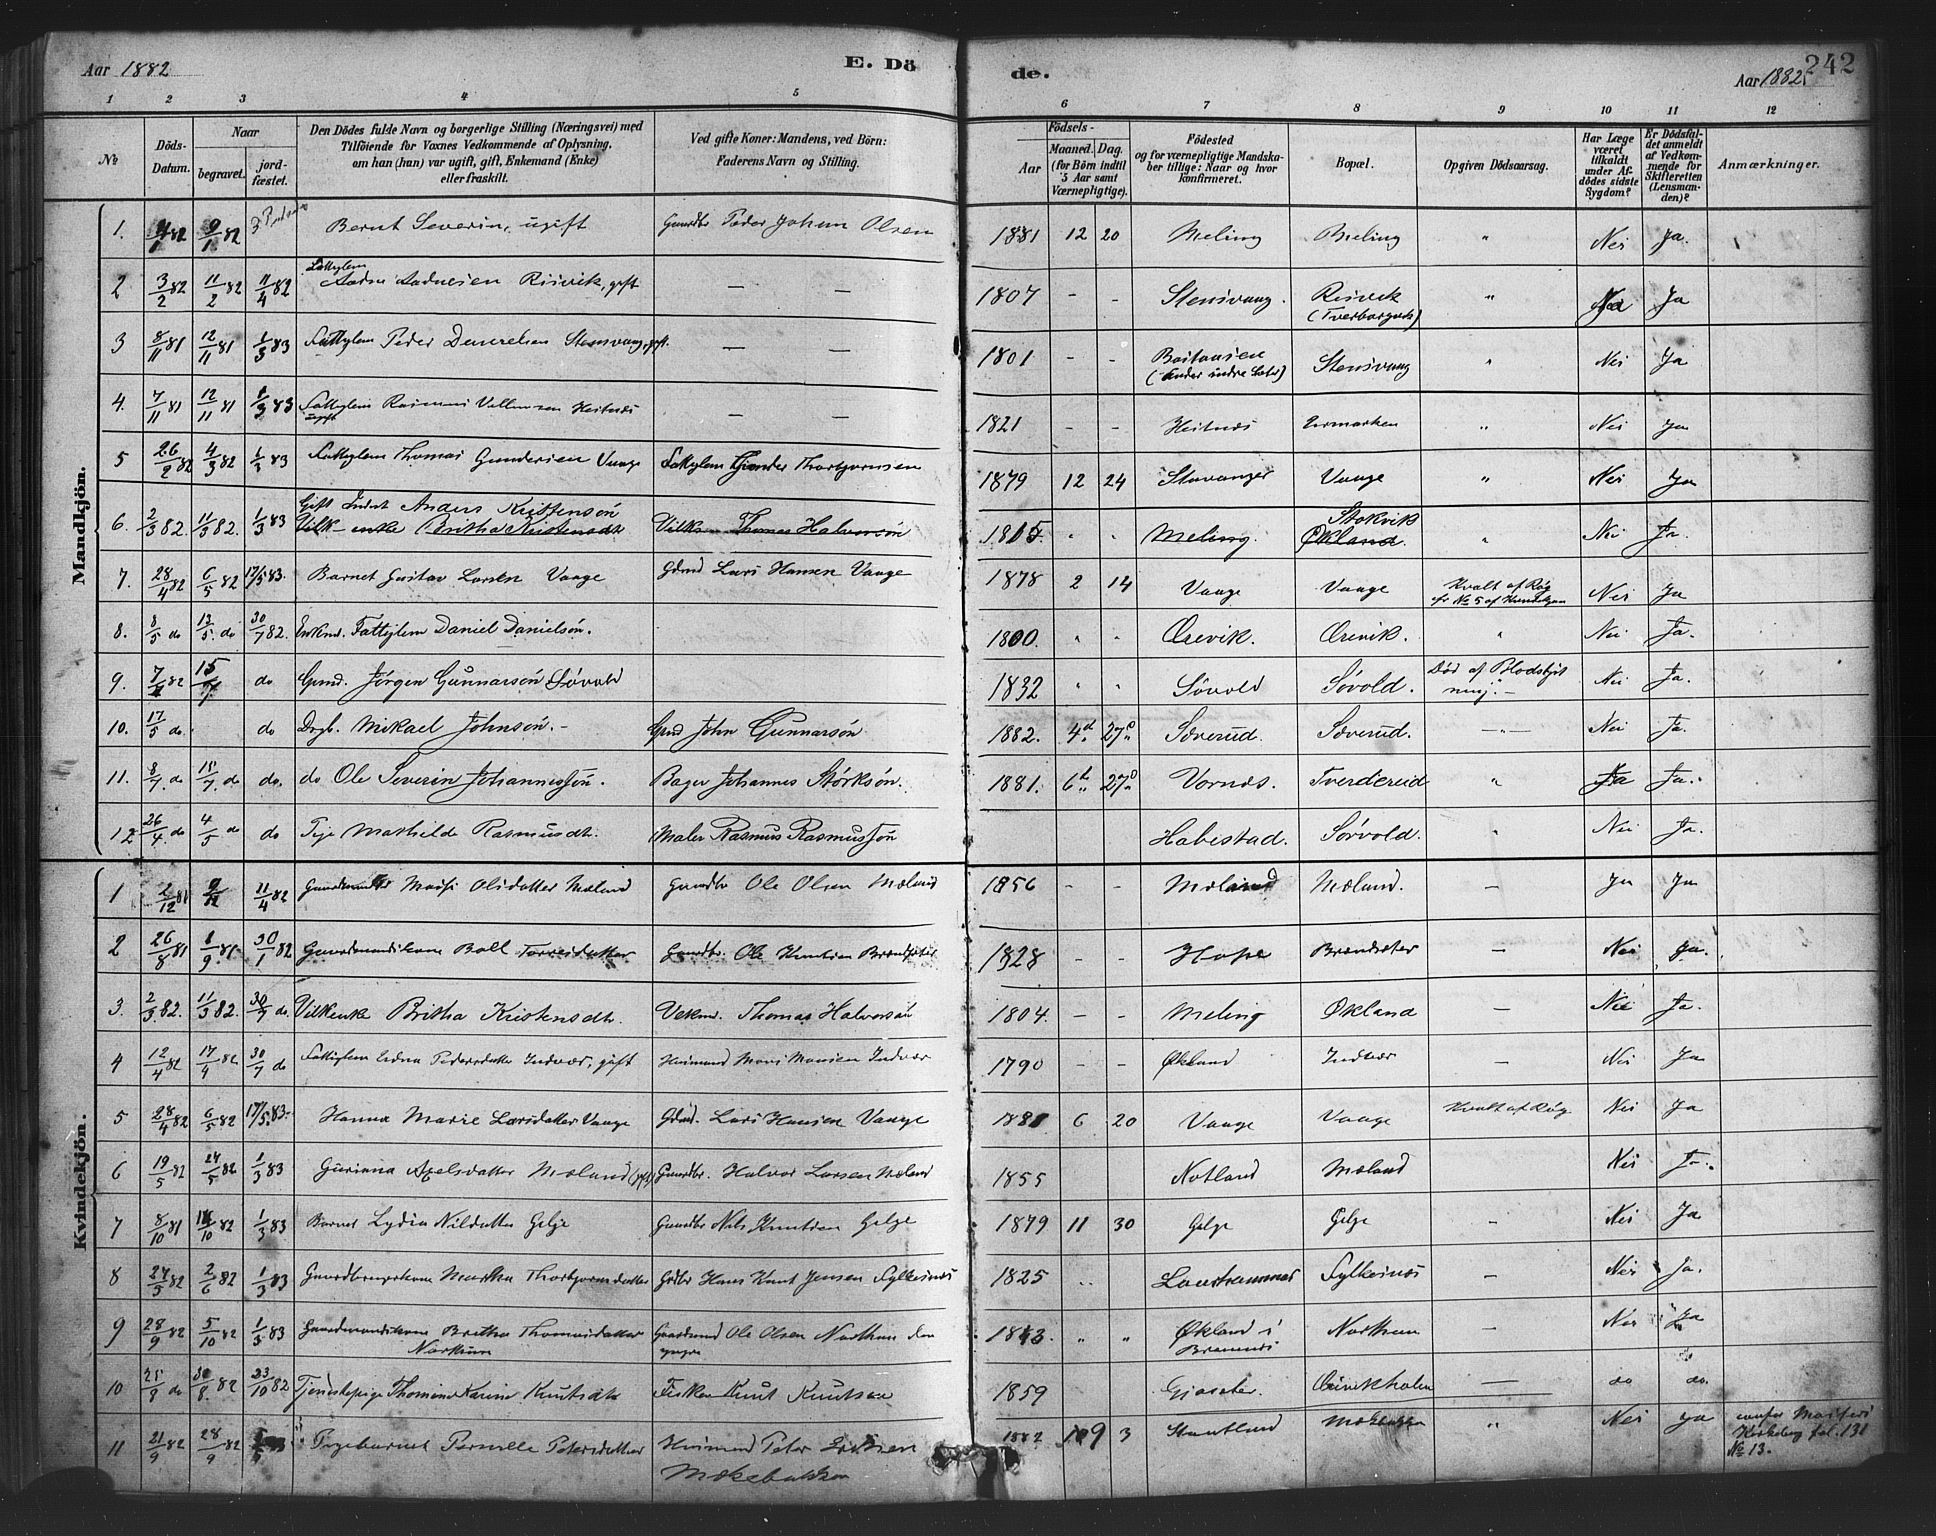 Aar 1882
E. Dö
de.
242
Aar 1882.
1 2 3 4 5 6 7 8 9 10 11 12
No
Döds-Datum.
Naar
begravet.
jord-fæstet.
Den Dödes fulde Navn og borgerlige Stilling (Næringsvei) med
Tilföiende for Voxnes Vedkommende af Oplysning,
om han (hun) var ugift, gift, Enkemand (Enke)
eller fraskilt.
Ved gifte Koner: Mandens, ved Börn:
Faderens Navn og Stilling.
Födsels-
Aar
Maaned. Dag.
(for Börn indtil
5 Aar samt
Værnepligtige).
Födested
og for værnepligtige Mandska-
ber tillige: Naar og hvor
konfirmeret.
Bopæl.
Opgiven Dödsaarsag.
Har Læge
været
tilkaldt
under Af-
dödes sidste
Sygdom?
Er Dödsfal-
det anmeldt
af Vedkom-
mende for
Skifteretten
(Lensman-
den)?
Anmærkninger.
Mandkjön.
1. 9/1 82 Bernt Severin, ugift Gaardbr Peder Johan Olsen 1881 12 20 Meling Meling " Nei Ja.
2 3/2 82 11/2 82 11/4 82 Fattiglem Aadne Aadnesen Risvik, gift — — 1807 - - Stensvaag Risvik " Ja
3 8/11 81 12/11 81 1/3 83 Fattiglem Peder Stensvaag, gift. — — 1801 - - Stensvaag " Nei Ja
4. 7/11 81 12/11 81 1/3 83 Fattiglem Rasmus Heitnæs ugift — — 1821 - - Heitnæs " Nei Ja
5 26/2 82 4/3 82 1/3 83 Fattiglem Thomas Gundersen Vaage Fattiglem Gunder Thorbjørnsen 1879 12 24 Stavanger Vaage " Nei Ja
6. 2/3 82. 11/3 82. 1/3 83 Gift Inderst Anders Kristensøn
Vilk enke Britha Kristensdt Vilkm Thomas Halvorsøn 1815. " " Meling. Stokvik Økland. " Nei Ja.
7. 28/4 82 6/5 82 17/5 83. Barnet Gustav Larsen Vaage Gdmd Lars Hansen Vaage 1878 2 14 Vaage Vaage Kvalt af Røg Nei Ja
8. 8/5 do 13/5 do 30/7 82. Enkmd. Fattiglem Daniel Danielsøn. 1800 " " Ørevik. Ørevik. " Nei Ja.
9. 7/7 82 15/7 do Gmd. Jørgen Gunnarsøn Søvold 1832 " " Søvold Søvold. Død af Blodspytning. — Nei Ja.
10. 17/5 do do Drgb. Mikael Johnsøn. – Gmd John Gunnarsøn 1882. 4d 27 Sæverud. Sæverud. —"— Nei Ja.
11. 8/7 do 15/7 do do. do Ole Severin Johannessøn. Bager Johannes Størksøn. 1881. 6 27 Vornæs. Tverdereid " Ja Ja.
12 26/4 do 4/5 do do Pige Mathilde Rasmusdt. Maler Rasmus Rasmussøn Habestad. Sørvold. " Nei Ja.
Kvindekjön.
1 2/12 81 11/4 82 Olsdatter Mæland Gaardbr Ole Olsen Mæland 1856 - - Mæland Mæland. — Ja Ja
2 26/8 81 1/9 81 30/1 82 Gaardmandskone Torresdatter Gaardbr. Ole Knutsen Brandsæter 1828 - - Hope Brandsæter — Nei Ja.
3. 2/3 82. 11/3 82. 30/7 do. Vilkenk Britha Kristensdt. Vekmd. Thomas Halvorsøn 1804. - - Meling Økland — Nei Ja.
4 12/4 82 17/4 82 30/7 do Fattiglem Pedersdatter Indvær, gift Husmand Mons Monsen Indvær 1790 - - Økland Indvær — Nei Ja
5 28/4 82 6/5 82 17/5. 83. Hanna Marie Larsdatter Vaage Gdmd. Lars Hansen Vaage 1881 6 20 Vaage Vaage Kvalt af Røg Nei Ja
6 19/5 82 24/5 82 1/3 83 Guriana Axelsdatter Mæland (gift) Gaardbr. Halvor Larsen Mæland 1855 Notland Mæland Nei Ja.
7 8/10 81 /10 82 1/3 83 Barnet Lydia Nilsdatter Gelje Gaardbr Nils Knutsen Gelge 1879 11 30 Gelge Gelge - Nei Ja
8 27/5 82 2/6 82 1/3 83 Gaardbrugerkone Martha Thorbjørnsdatter Grdbr Hans Knut Jensen Fylkesnæs 1825 " Fylkesnæs — Nei Ja.
9 28/9 82 5/10 82 1/3 83 Gaardmandskone Britha Thomasdatter Nordhun Gaardmd Ole Olsen den yngre 1843. " " Økland i — Nei Ja
10 25/8 do 30/8. 82 23/10 82 Tjenestepige Thomine Karine Knutsdt Fisker Knut Knutsen 1859 Gjøsæter. Ørevikholm — do do.
11 21/9 82 28/9 82 Pigebarnet Pernille Petersdatter Husmand Peter
Møkebakken 1882 9 3 Stautland Møkebakken " Nei Ja confer
Kirkebog fol. 131
No 13.